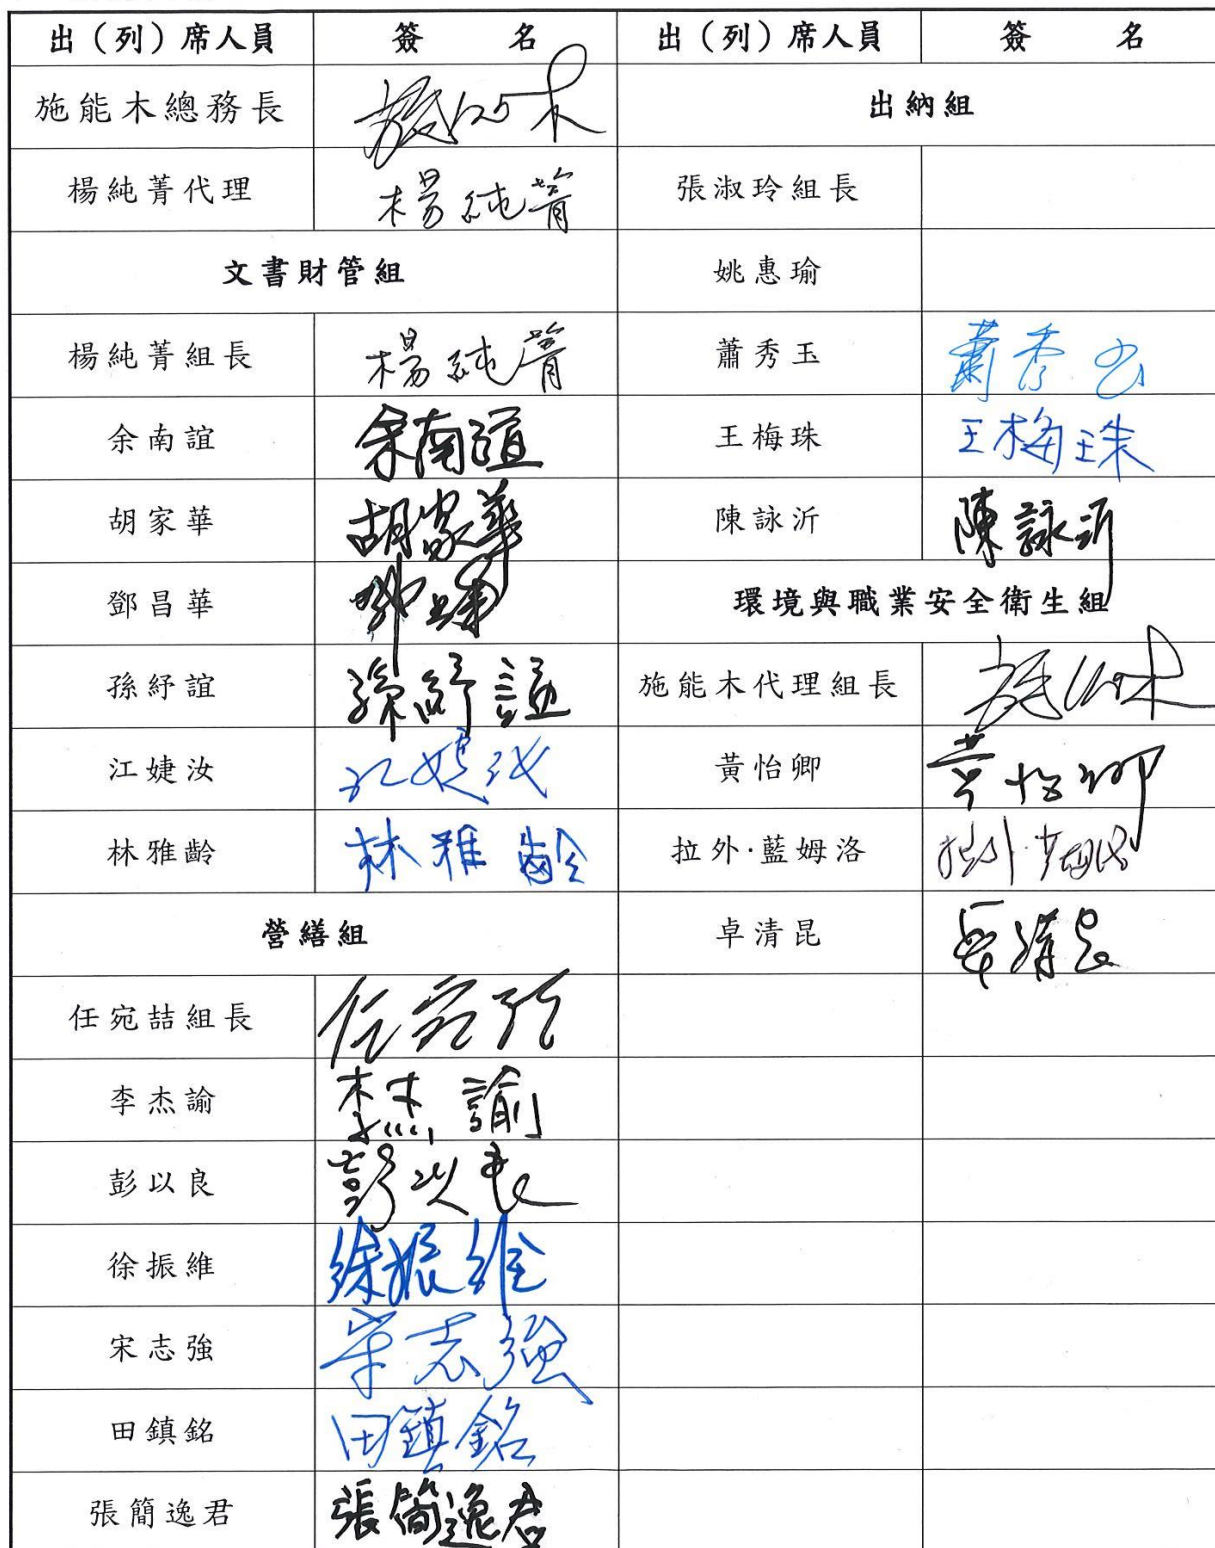 出（列）席人員 簽 名 出（列）席人員 簽 名
施能木總務長 施能木 出納組
楊純菁代理 楊純菁 張淑玲組長
文書財管組 姚惠瑜
楊純菁組長 楊純菁 蕭秀玉 蕭秀玉
余南誼 余南誼 王梅珠 王梅珠
胡家華 胡家華 陳詠沂 陳詠沂
鄧昌華 鄧昌華 環境與職業安全衛生組
孫紓誼 孫紓誼 施能木代理組長 施能木
江婕汝 江婕汝 黃怡卿 黃怡卿
林雅齡 林雅齡 拉外·藍姆洛 拉外·藍姆洛
營繕組 卓清昆 卓清昆
任宛喆組長 任宛喆
李杰諭 李杰諭
彭以良 彭以良
徐振維 徐振維
宋志強 宋志強
田鎮銘 田鎮銘
張簡逸君 張簡逸君